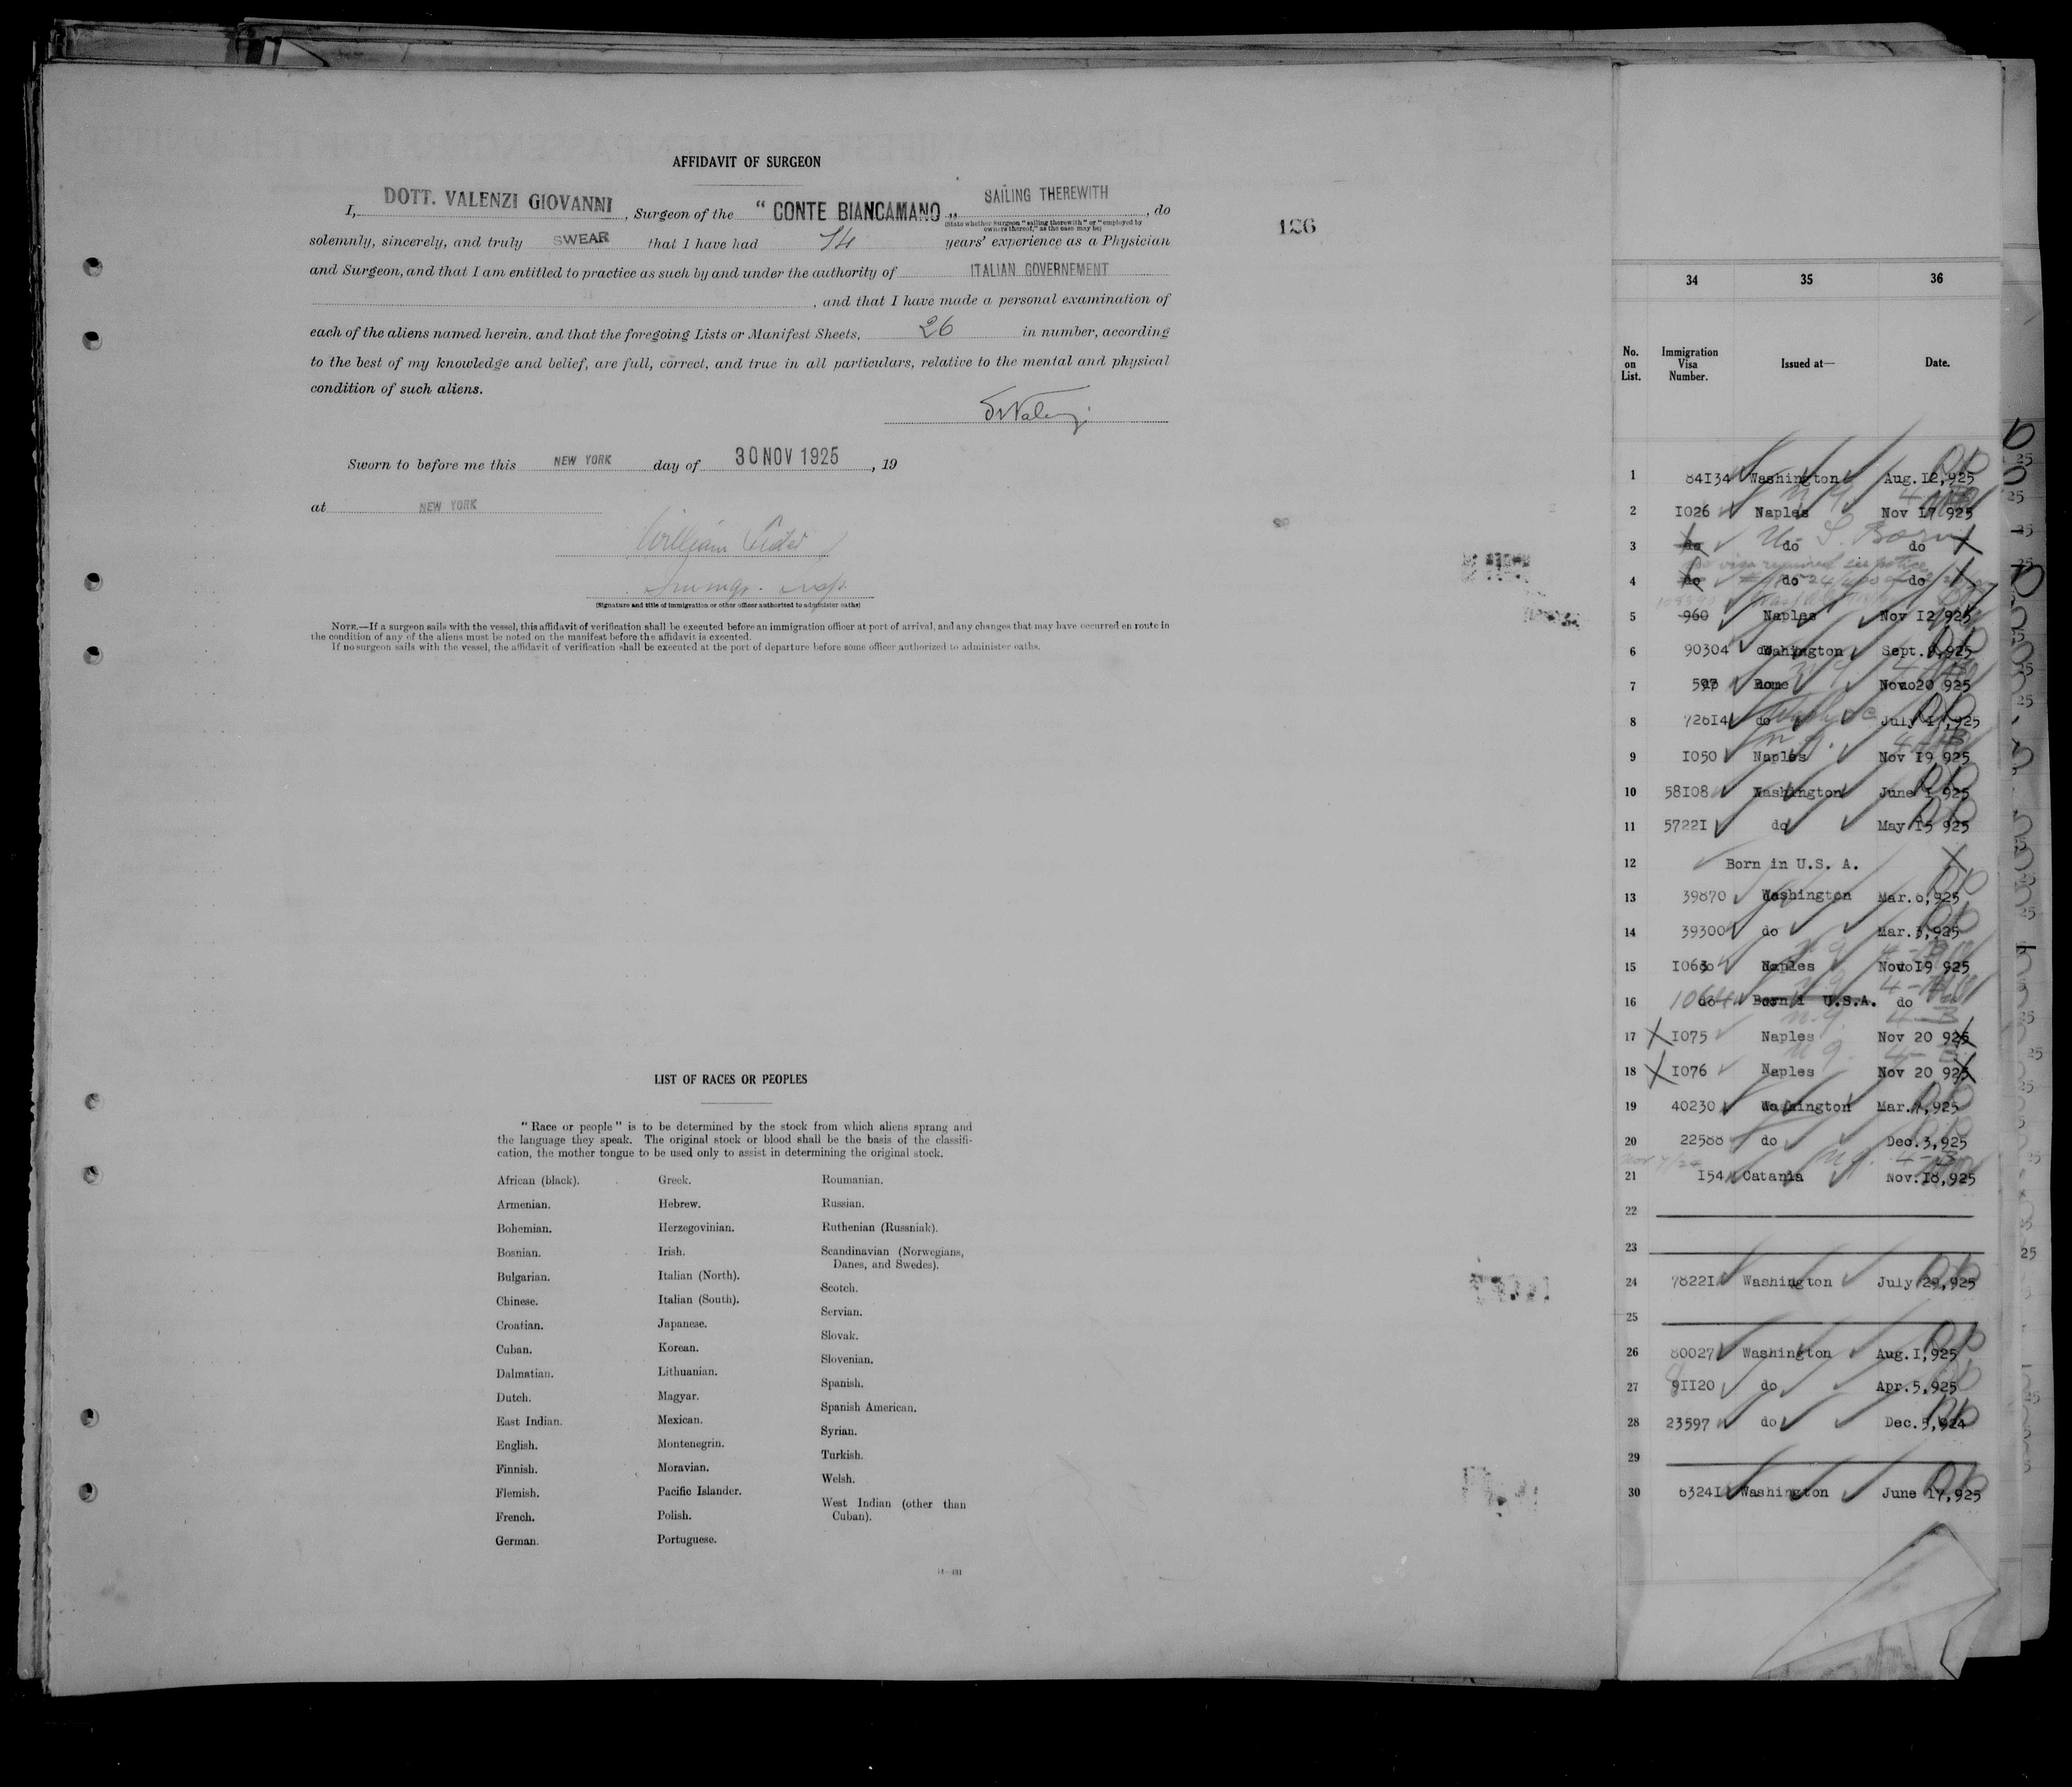 AFFIDAVIT OF SURGEON
I, DOTT. VALENZI GIOVANNI, Surgeon of the "CONTE BIANCAMANO„ SAILING THEREWITH, do
(State whether Surgeon "sailing therewith" or "employed by
owners thereof," as the case may be)
126
solemnly, sincerely, and truly SWEAR that I have had 14 years' experience as a Physician
and Surgeon, and that I am entitled to practice as such by and under the authority of ITALIAN GOVERNEMENT
, and that I have made a personal examination of
each of the aliens named herein, and that the foregoing Lists or Manifest Sheets, 26 in number, according
to the best of my knowledge and belief, are full, correct, and true in all particulars, relative to the mental and physical
condition of such aliens.
Sworn to before me this NEW YORK day of 30 NOV 1925, 19
at NEW YORK
William
(Signature and title of immigration or other officer authorized to administer oaths)
NOTE.—If a surgeon sails with the vessel, this affidavit of verification shall be executed before an immigration officer at port of arrival, and any changes that may have occurred en route in
the condition of any of the aliens must be noted on the manifest before the affidavit is executed.
If no surgeon sails with the vessel, the affidavit of verification shall be executed at the port of departure before some officer authorized to administer oaths.
LIST OF RACES OR PEOPLES
"Race or people" is to be determined by the stock from which aliens sprang and
the language they speak. The original stock or blood shall be the basis of the classifi-
cation, the mother tongue to be used only to assist in determining the original stock.
African (black).
Armenian.
Bohemian.
Bosnian.
Bulgarian.
Chinese.
Croatian.
Cuban.
Dalmatian.
Dutch.
East Indian.
English.
Finnish.
Flemish.
French.
German.
Greek.
Hebrew.
Herzegovinian.
Irish.
Italian (North).
Italian (South).
Japanese.
Korean.
Lithuanian.
Magyar.
Mexican.
Montenegrin.
Moravian.
Pacific Islander.
Polish.
Portuguese.
Roumanian.
Russian.
Ruthenian (Russniak).
Scandinavian (Norwegians,
Danes, and Swedes).
Scotch.
Servian.
Slovak.
Slovenian.
Spanish.
Spanish American.
Syrian.
Turkish.
Welsh.
West Indian (other than
Cuban).
34 35 36
No. on List. Immigration Visa Number. Issued at— Date.
1 84I34 Washington Aug. I2,925
2 I026 Naples Nov I7 925
3 do do do U. S. Born
4 do do do
5 960 Naples Nov I2 925
6 90304 Washington Sept. 8,925
7 Rome Nov 20 925
8 726I4 do July I7,925
9 I050 Naples Nov I9 925
10 58I08 Washington June I 925
11 5722I do May I5 925
12 Born in U.S. A.
13 39870 Washington Mar. 925
14 39300 do Mar. 3,925
15 I063 Naples Nov I9 925
16 1064 Born i U.S.A. do
17 I075 Naples Nov 20 925
18 I076 Naples Nov 20 925
19 40230 Washington Mar. 925
20 22588 do Dec. 3,925
21 I54 Catania Nov. I8,925
22
23
24 7822I Washington July 29,925
25
26 80027 Washington Aug. I,925
27 9II20 do Apr. 5,925
28 23597 do Dec. 5,924
29
30 6324I Washington June I7,925